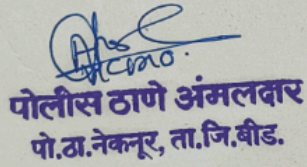 पोलीस ठाणे अंमलदार
पो.ठा.नेकनूर, ता.जि.बीड.